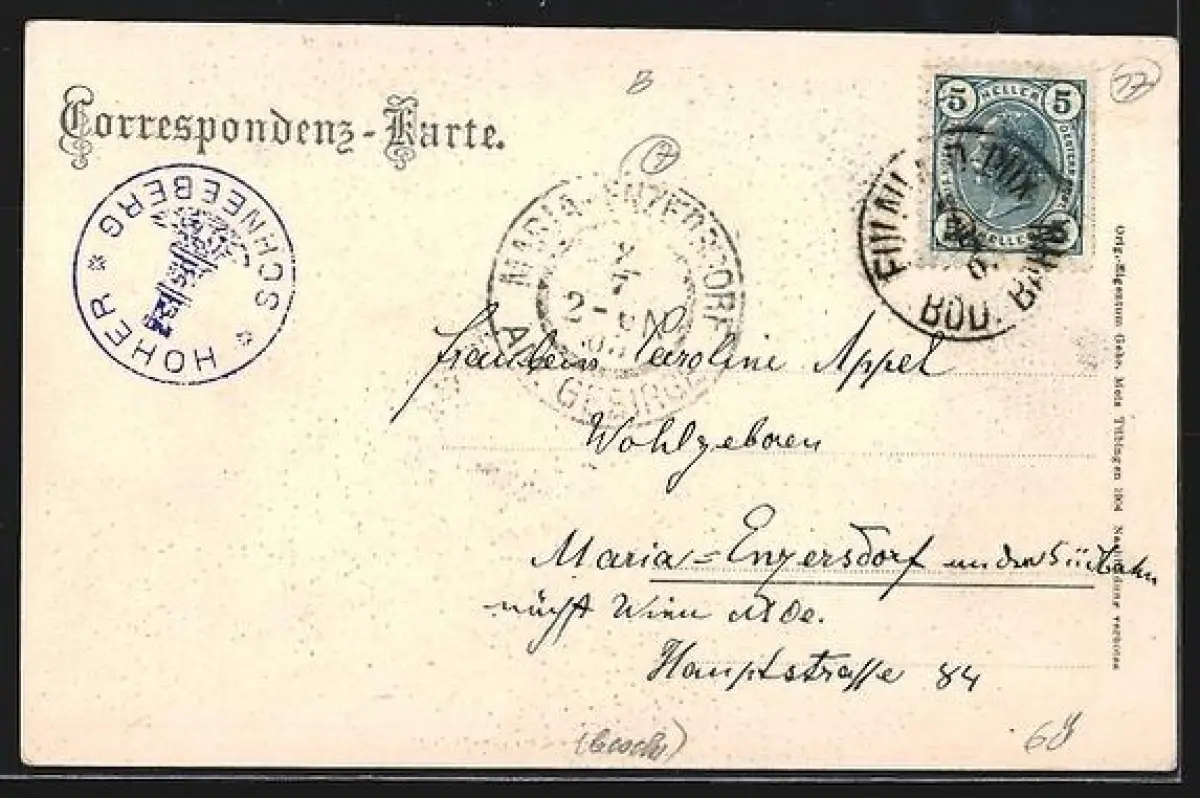 Correspondenz-Karte.
HOHER SCHNEEBERG
MARIA-ENZERSDORF
GEBIRGE
5 HELLER 5
HELLER
BOD. BAHN
Fräulein Karoline Appel
Wohlgeboren
Maria=Enzersdorf an der Südbahn
nächst Wien N.Oe.
Hauptstrasse 84
Orig.-Eigentum Gebr. Metz Tübingen 1904 Nachbildung verboten
(beschr)